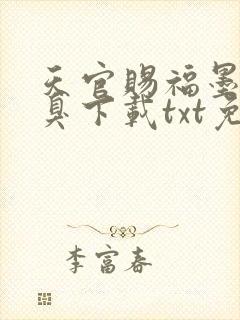 天官赐福墨
真下载txt免
李富春